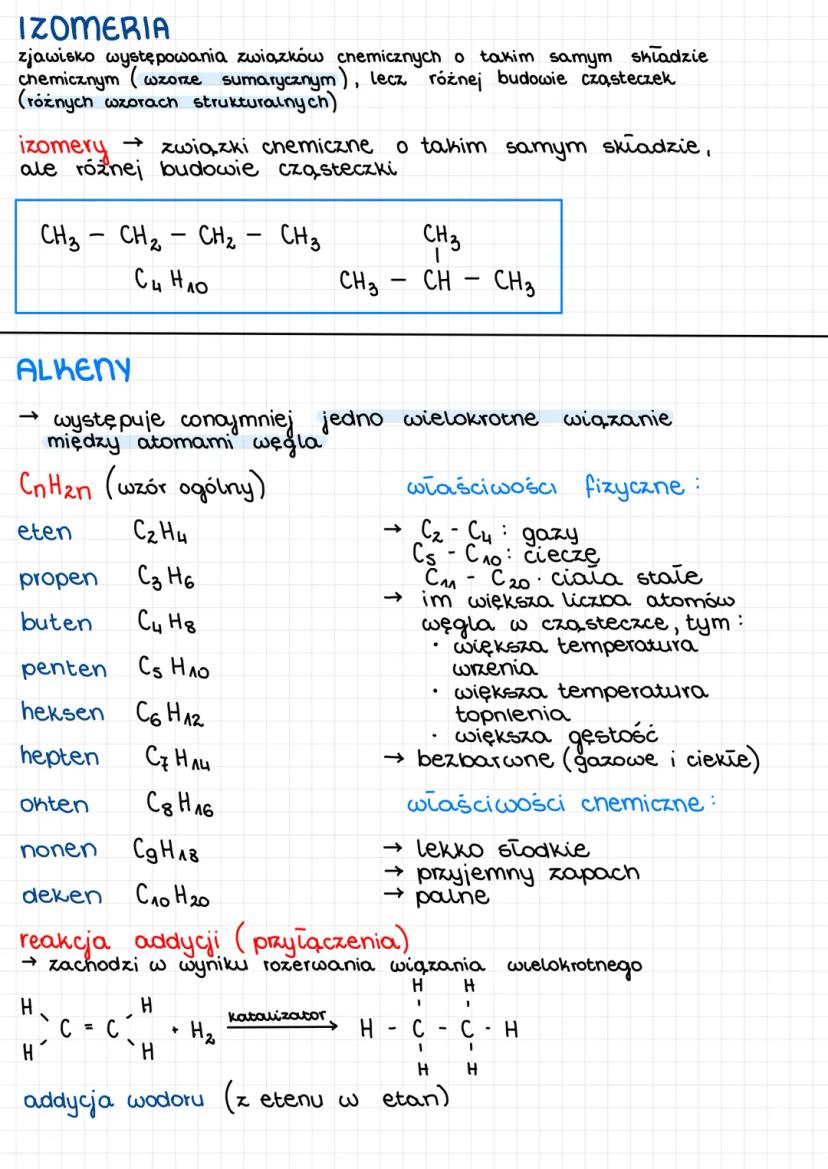 IZOMERIA
zjawisko występowania związków chemicznych o takim samym składzie
chemicznym (wzorze sumarycznym), lecz różnej budowie cząsteczek
(różnych wzorach strukturalnych)
izomery → związki chemiczne o takim samym składzie,
ale różnej budowie cząsteczki
CH₃ – CH₂ – CH₂ – CH₃
C₄H₁₀
CH₃
|
CH₃ – CH – CH₃
ALKENY
→ występuje conajmniej jedno wielokrotne wiązanie
między atomami węgla
CnH2n (wzór ogólny)
eten C₂H₄
propen C₃H₆
buten C₄H₈
penten C₅H₁₀
heksen C₆H₁₂
hepten C₇H₁₄
okten C₈H₁₆
nonen C₉H₁₈
deken C₁₀H₂₀
właściwości fizyczne:
→ C₂ - C₄ : gazy
C₅ - C₁₀ : ciecze
C₁₁ - C₂₀ : ciała stałe
→ im większa liczba atomów
węgla w cząsteczce, tym:
• większa temperatura
wrzenia
• większa temperatura
topnienia
• większa gęstość
→ bezbarwne (gazowe i ciekłe)
właściwości chemiczne:
→ lekko słodkie
→ przyjemny zapach
→ palne
reakcja addycji (przyłączenia)
→ zachodzi w wyniku rozerwania wiązania wielokrotnego
H H H H
C = C + H₂ katalizator → H - C - C - H
H H H H
addycja wodoru (z etenu w etan)